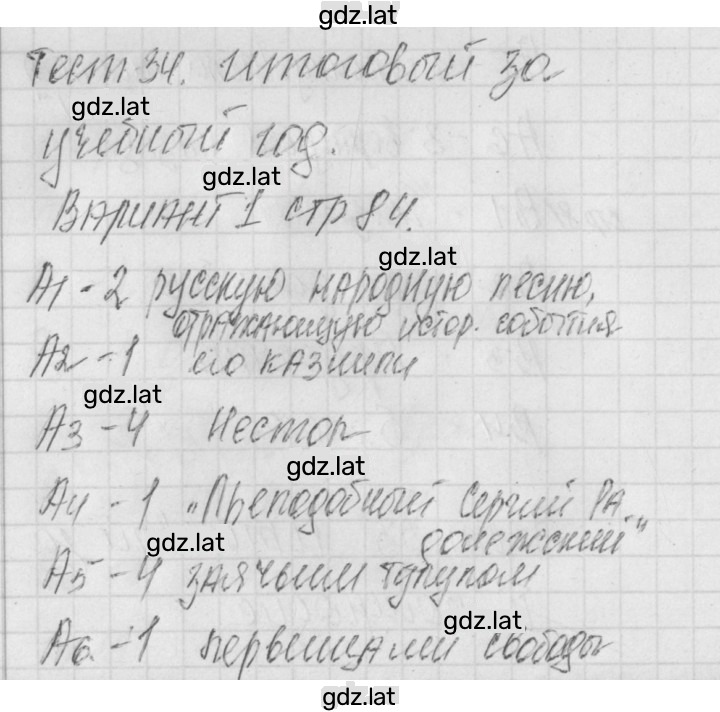 gdz.lat
Тест 34. Итоговый за
gdz.lat
учебный год.
gdz.lat
Вариант 1 стр 84.
gdz.lat
А1 - 2 русскую народную песню,
отражающую истор. события
А2 - 1 его казнили
gdz.lat
А3 - 4 Нестор
gdz.lat
А4 - 1 „Преподобный Сергий Ра
gdz.lat
донежский"
А5 - 4 заячьим тулупом
gdz.lat
А6 - 1 первенцами свободы
gdz.lat